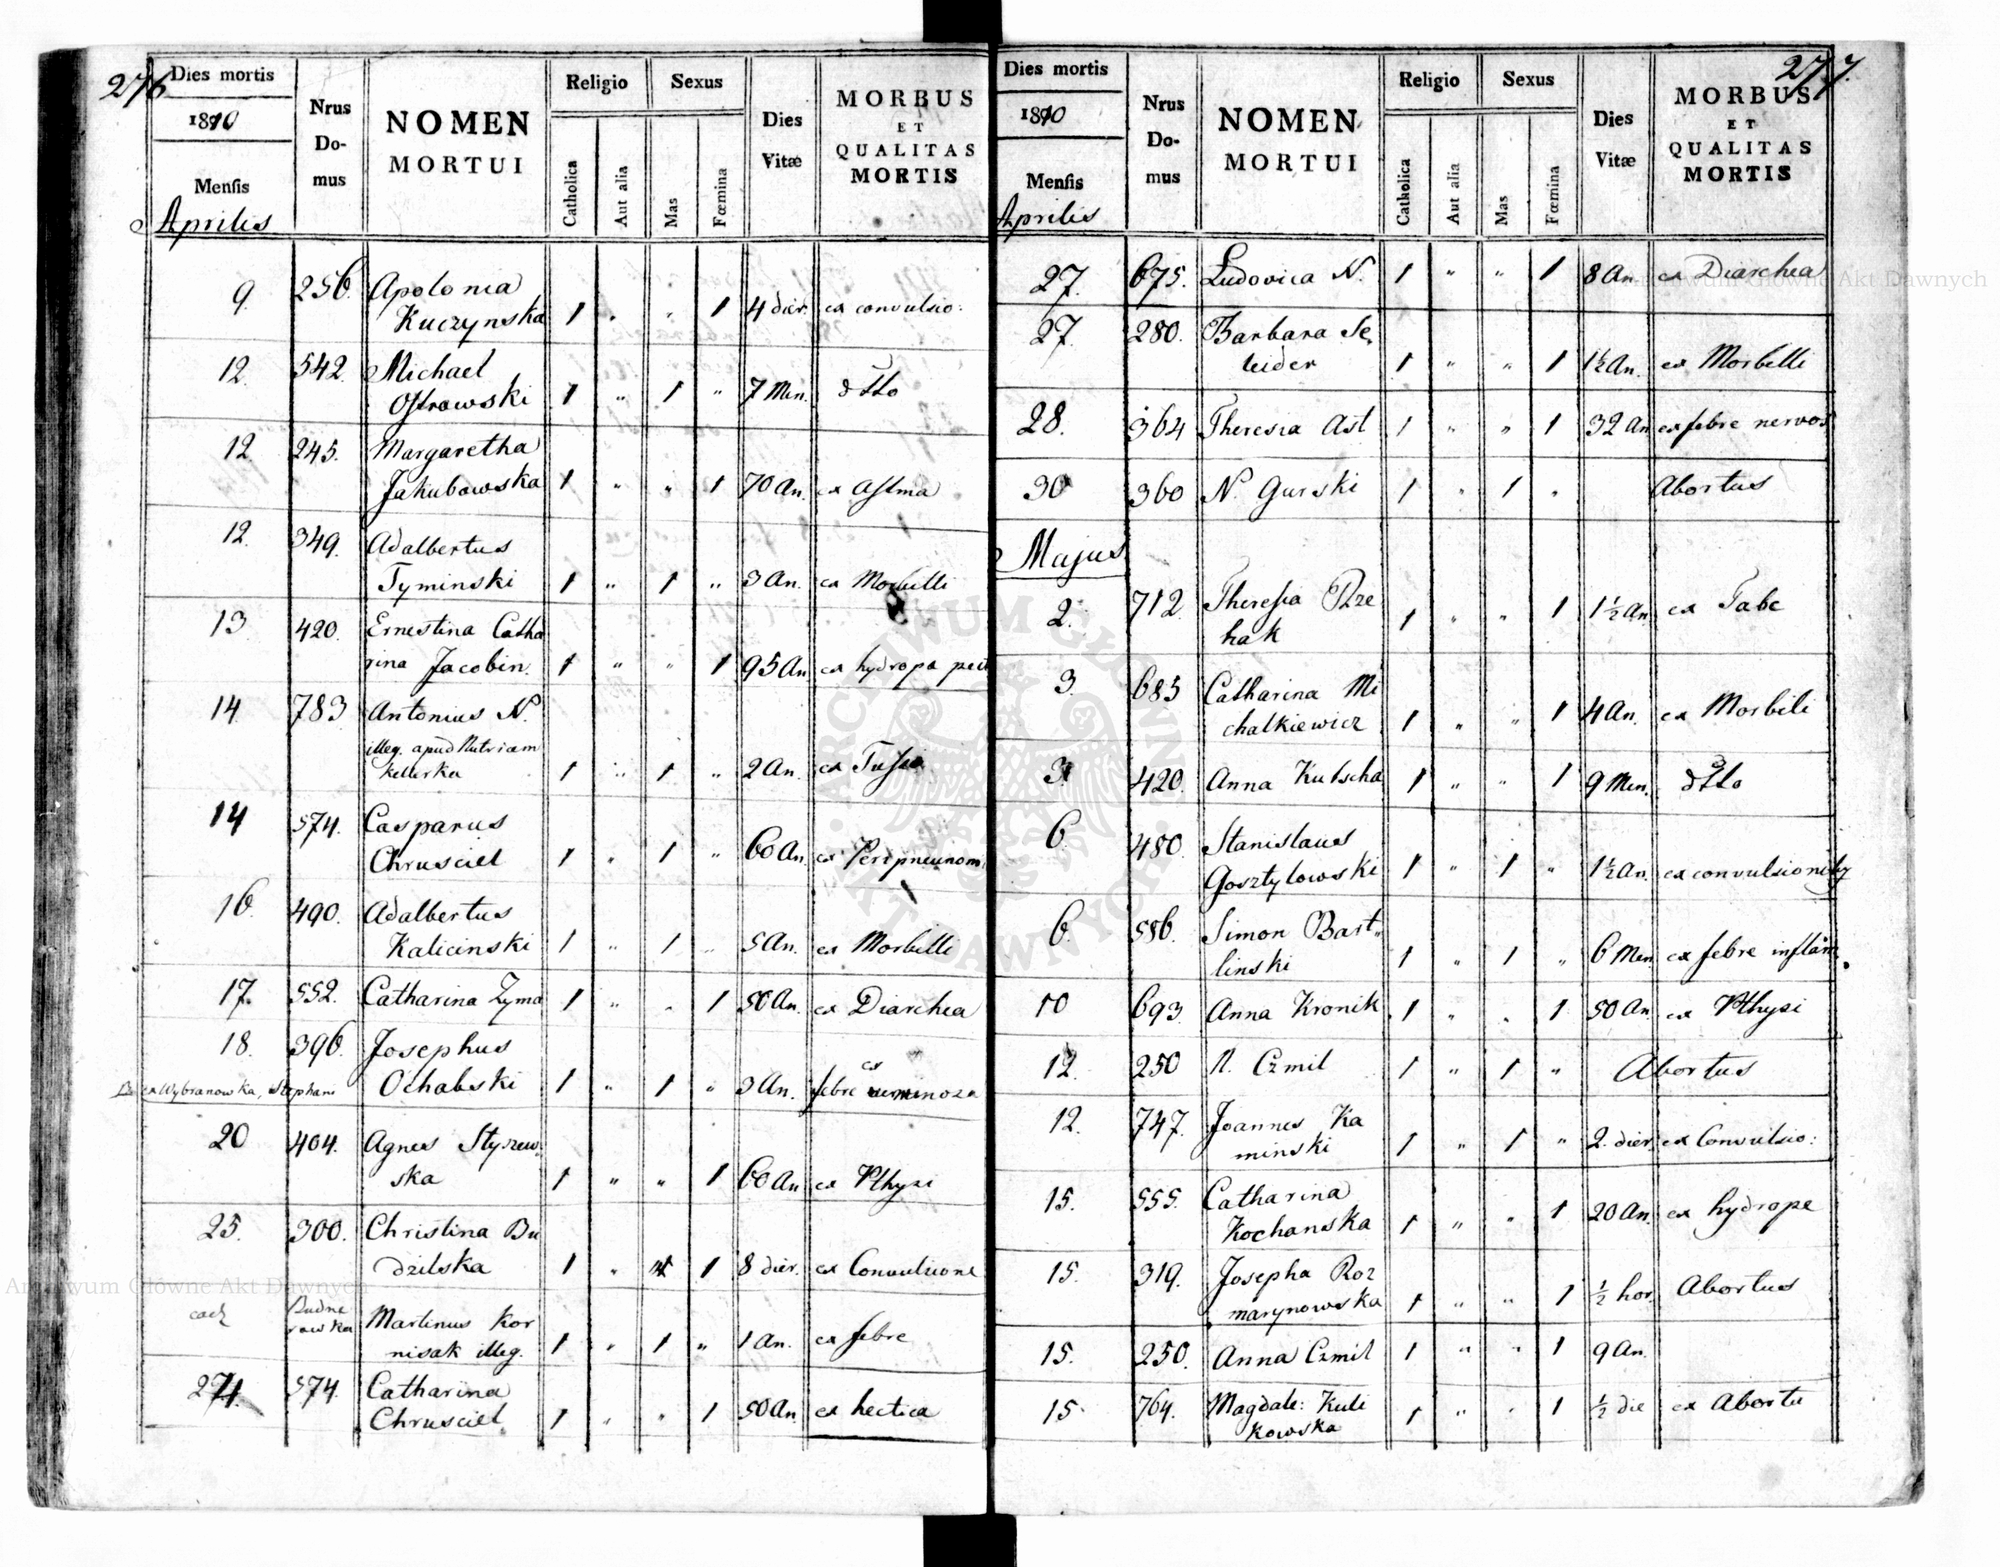 276
Dies mortis
1810
Mensis
Aprilis
Nrus
Do-
mus
NOMEN
MORTUI
Religio
Catholica
Aut alia
Sexus
Mas
Fœmina
Dies
Vitæ
MORBUS
ET
QUALITAS
MORTIS
9 256 Apolonia
Kuczynska 1 " " 1 4 dier. ex convulsio:
12 542. Michael
Ostrowski 1 " 1 " 7 Men. dtto
12 245. Margaretha
Jakubowska 1 " " 1 70 An. ex Astma
12. 349. Adalbertus
Tyminski 1 " 1 " 3 An. ex Morbilli
13 420. Ernestina Catha
rina Jacobin. 1 " " 1 95 An. ex hydropa
14 783 Antonius N.
illeg. apud Nutricem
1 " 1 " 2 An. ex Tussi
14 574. Casparus
Chrusciel 1 " 1 " 60 An. ex Peripneunom
16 490. Adalbertus
Kalicinski 1 " 1 " 5 An. ex Morbilli
17. 552. Catharina Zyma 1 " " 1 50 An. ex Diarchea
18. 396. Josephus
Ochabski 1 " 1 " 3 An. ex
febre
ex Wybranowka, Stephani
20 404. Agnes Styzew
ska 1 " " 1 60 An ex Pthysi
25. 300. Christina Bu
dzilska 1 " 1 8 dier. ex Convulsione
Martinus Kor
nisak illeg. 1 " 1 " 1 An. ex febre
574. Catharina
Chrusciel 1 " " 1 50 An ex hectica
277.
Dies mortis
1810
Mensis
Aprilis
Nrus
Do-
mus
NOMEN
MORTUI
Religio
Catholica
Aut alia
Sexus
Mas
Fœmina
Dies
Vitæ
MORBUS
ET
QUALITAS
MORTIS
27. 675. Ludovica N. 1 " " 1 8 An. ex Diarchea
27. 280. Barbara Se
leider 1 " " 1 1½ An. ex Morbilli
28. 364 Theresia Ast 1 " " 1 32 An ex febre nervos
30 360 N. Gurski 1 " 1 " Abortus
Majus
2. 712 Theresia Rze
hak 1 " " 1 1½ An. ex Tabe
3 685 Catharina Mi
chalkiewicz 1 " " 1 4 An. ex Morbili
3 420. Anna Kutscha 1 " " 1 9 Men. dtto
6. 480. Stanislaus
Gosztylowski 1 " 1 " 1½ An. ex convulsionib
6. 586. Simon Bart"
linski 1 " 1 " 6 Men. ex febre inflam.
10 693 Anna Kronik 1 " " 1 50 An ex Pthysi
12. 250 N. Czmil 1 " 1 " Abortus
12. 747. Joannes Ka
minski 1 " 1 " 2. dier. ex Convulsio:
15. 555. Catharina
Kochanska 1 " " 1 20 An. ex hydrope
15. 319. Josepha Roz
marynowska 1 " " 1 ½ hor. Abortus
15. 250. Anna Czmil 1 " " 1 9 An.
15 764. Magdale: Kuli
kowska 1 " " 1 ½ die ex Abortu
Archiwum Główne Akt Dawnych
Archiwum Główne Akt Dawnych
ARCHIWUM GŁÓWNE AKT DAWNYCH